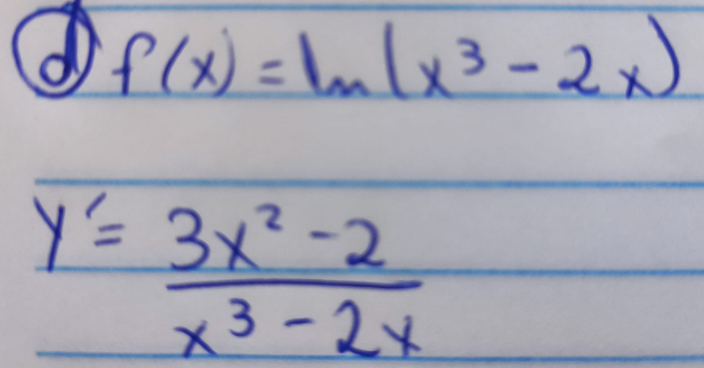 (d) f(x) = ln(x³ - 2x)
y' = 3x² - 2
x³ - 2x